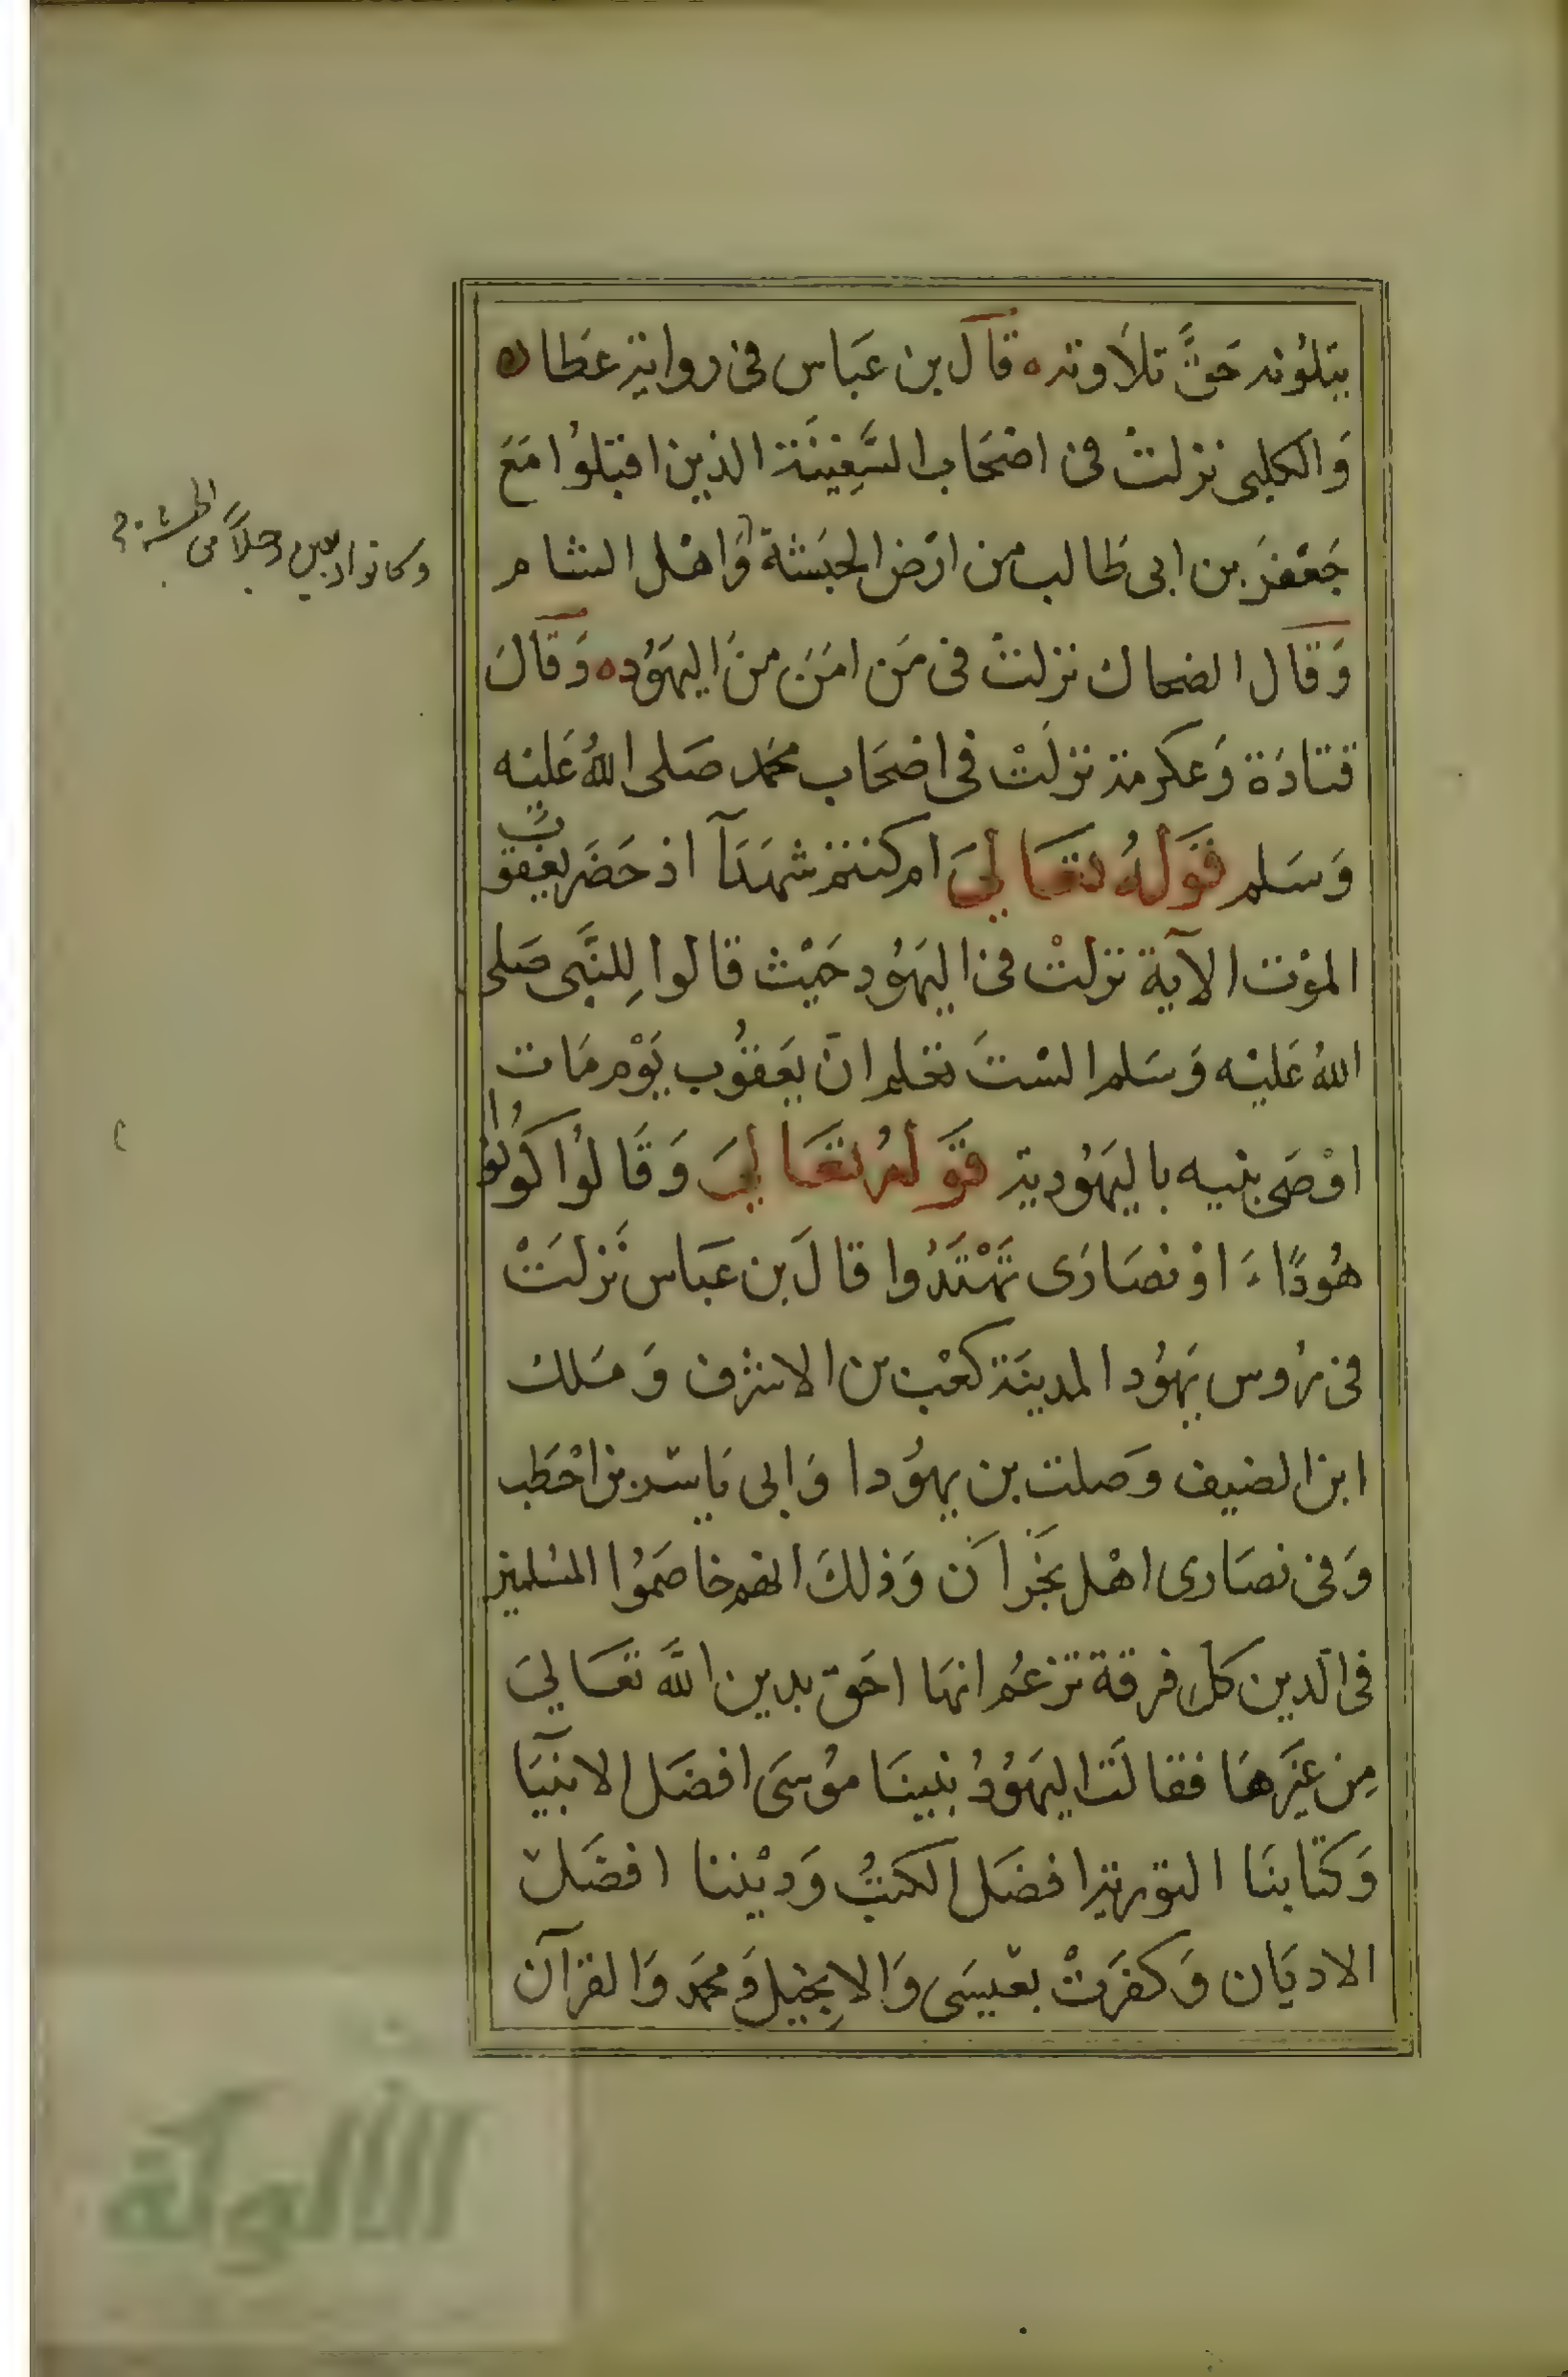 يتلونه حَقَّ تلاَوته ه قَالَ بن عَبَاس فى رواية عَطا ه
وَالكلبى نزلتْ فى اصْحَاب السَّفِينَة الذين اقبلوُا مَعَ
جَعْفَرَ بن ابى طَالب من ارْض الحبَشة وَاهْل الشام
وكانوا اربعين رجلاً من الحبشة
وَقَال الضحاك نزلتْ فى مَن امَنَ منَ اليهَوُد ه وَقَالَ
قتادَة وَعكرمة نزلَتْ فى اصْحَاب محمَّد صَلى اللهُ عَليْه
وَسَلم قَوَلهُ تعَالىَ ام كنتم شهَدَآ اذ حَضَر يعْقوب
الموْت الآية نزلتْ فى اليهَوُد حَيْث قالوا لِلنَّبى صَلى
اللهُ عَليْه وَسَلم السْتَ تعْلم انّ يعَقوُب يَوْم مَات
اوْصَى بنيه باليهَوُدية قوَلهُ تعَالىَ وَقَالوُا كوُنوُا
هُودًاءَ اوْ نصَارَى تَهْتَدُوا قالَ بن عَبَاس نَزلتْ
فى رؤس يهَوُد المدينَة كعْب بن الاشرف وَمَلك
ابن الضيف وَصلت بن يهوُدا وَابى يَاسر بن احْطَب
وَفى نصَارى اهْل نجَرانَ وَذلكَ انهم خاصَموُا المسْلمين
فى الدين كل فرقة تزعُم انهَا احَق بدين اللَّه تعَالىَ
مِن غيَرهَا فقالتَ اليهَوُدُ نبينَا موُسَى افضَل الانبيَآ
وَكتابنَا التورية افضَل الكتبُ وَديْننا افضَل
الاديَان وَكفرَتْ بعْيسَى وَالاِنجيْل وَمحمَّد وَالقرآن
الألوكة